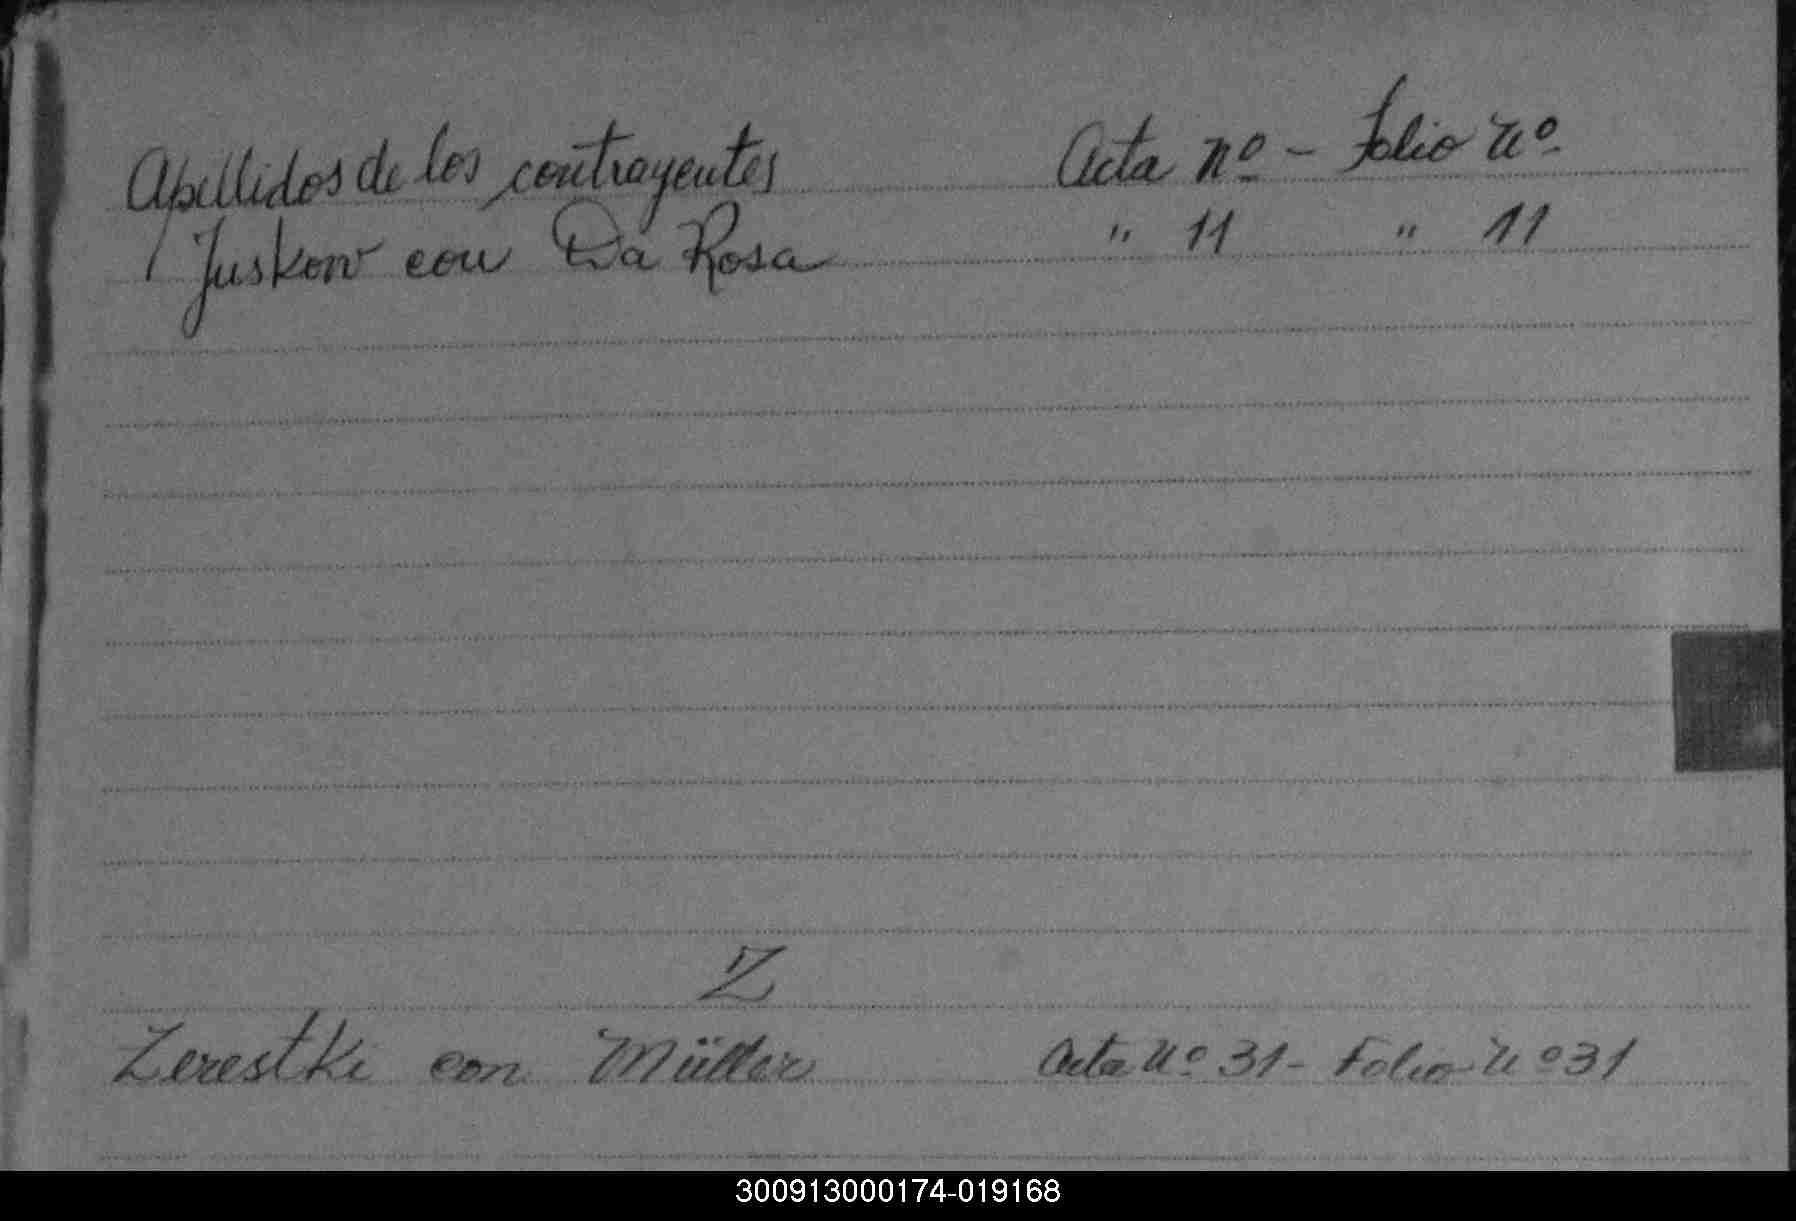 Apellidos de los contrayentes Acta Nº - Folio Nº
Juskow con Da Rosa " 11 " 11
Z
Zerestki con Müller Acta Nº 31 - Folio Nº 31
300913000174-019168